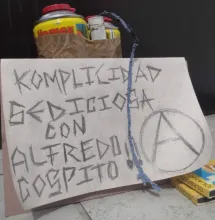 KOMPLICIDAD
SEDICIOSA
CON
ALFREDO
COSPITO!